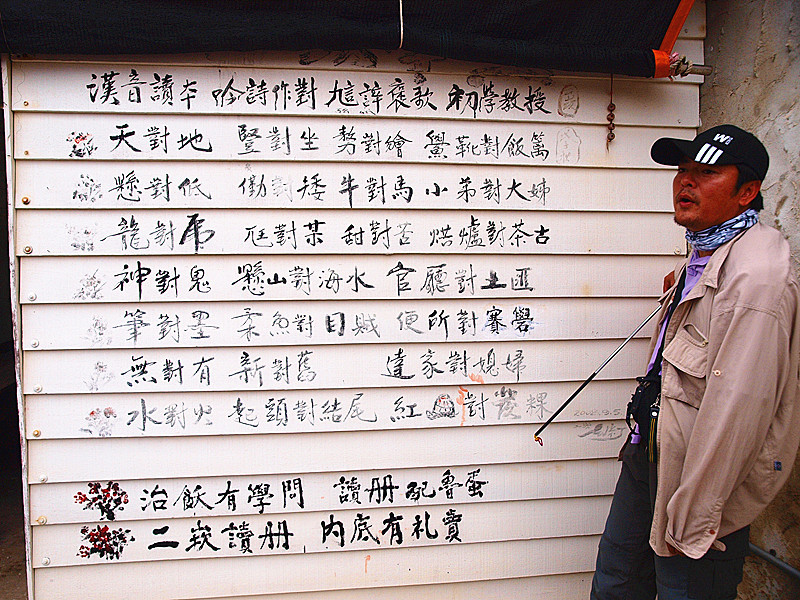 漢音讀本 吟詩作對 褒歌 初學教授
天對地 豎對坐 勢對繪 鱟靴對飯篱
懸對低 對矮 牛對馬 小弟對大姊
龍對 尪對某 甜對苦 烘爐對茶古
神對鬼 懸山對海水 官廳對土匪
筆對墨 柔魚對目賊 便所對
無對有 新對舊 達家對媳婦
水對火 起頭對結尾 紅 對發粿
2008.9.5
治飫有學問 讀册配魯蛋
二崁讀册 内底有礼賣
W